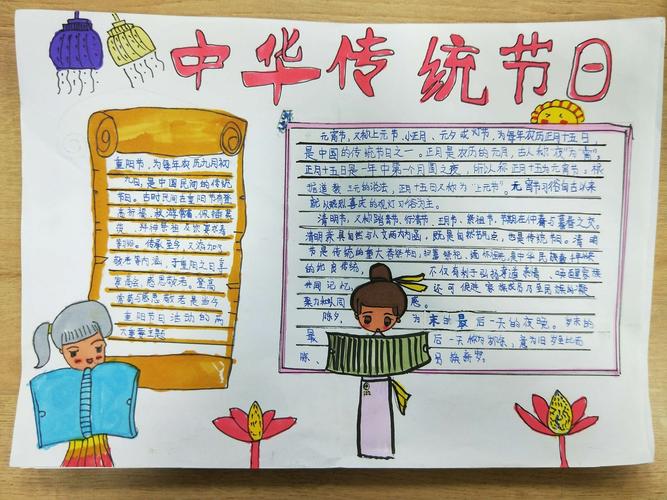 中华传统节日
重阳节,为每年农历九月初
九日,是中国民间的传统
节日。古时民间在重阳节有登
高祈福、秋游赏菊、佩插茱
萸、拜神祭祖及饮宴求寿
等习俗。传承至今,又添加了
敬老等内涵,于重阳之日享
宴高会,感恩敬老。登高
赏菊与感恩敬老是当今
重阳节日活动的两
大重要主题
元宵节,又称上元节、小正月、元夕或灯节,为每年农历正月十五日
是中国的传统节日之一。正月是农历的元月,古人称夜为"宵",
正月十五是一年中第一个月圆之夜,所以称正月十五为元宵节。根
据道教"三元"的说法,正月十五又称为"上元节"。元宵节习俗自古以来
就以热烈喜庆的观灯习俗为主。
清明节,又称踏青节、行清节、三月节、祭祖节,节期在仲春与暮春之交。
清明兼具自然与人文两大内涵,既是自然节气点,也是传统节日。清明
节是传统的重大春祭节日,扫墓祭祀、缅怀祖先,是中华民族
的优良传统,不仅有利于弘扬孝道亲情、唤醒家族
共同记忆,还可促进家族成员乃至民族的凝
聚力和认同感。
除夕,为末的最后一天的夜晚。岁末的
最后一天称为岁除,意为旧岁至此而
除,另换新岁。